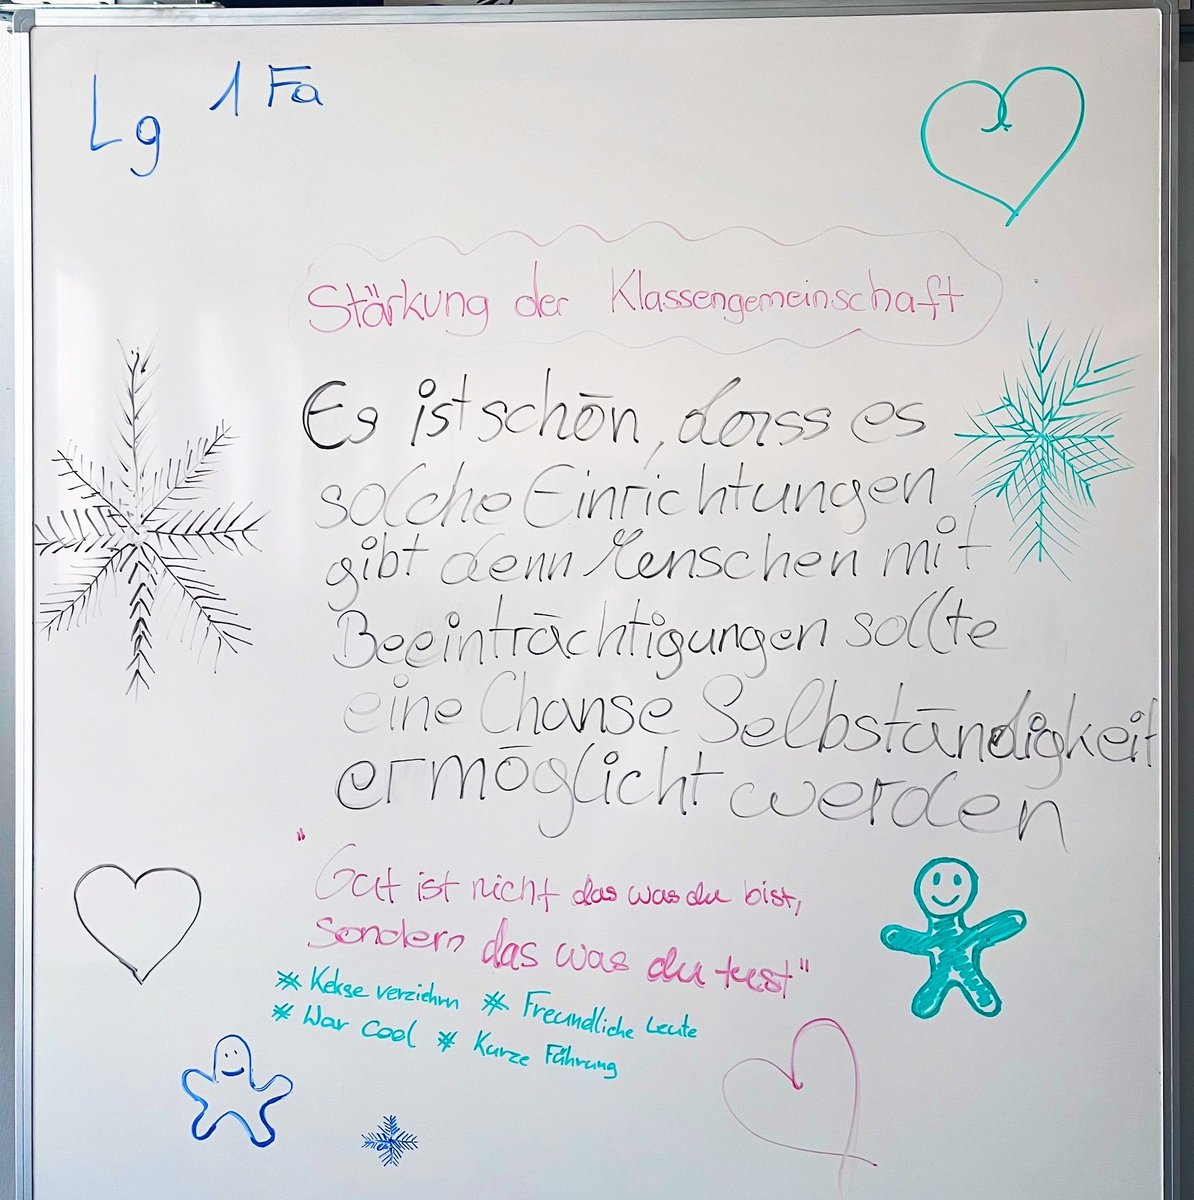 Lg 1Fa
Stärkung der Klassengemeinschaft
Es ist schön, dass es
solche Einrichtungen
gibt denn Menschen mit
Beeinträchtigungen sollte
eine Chanse Selbständigkeit
ermöglicht werden
"Gut ist nicht das was du bist,
sondern das was du tust"
# Kekse verziehrn # Freundliche Leute
# War cool # Kurze Führung